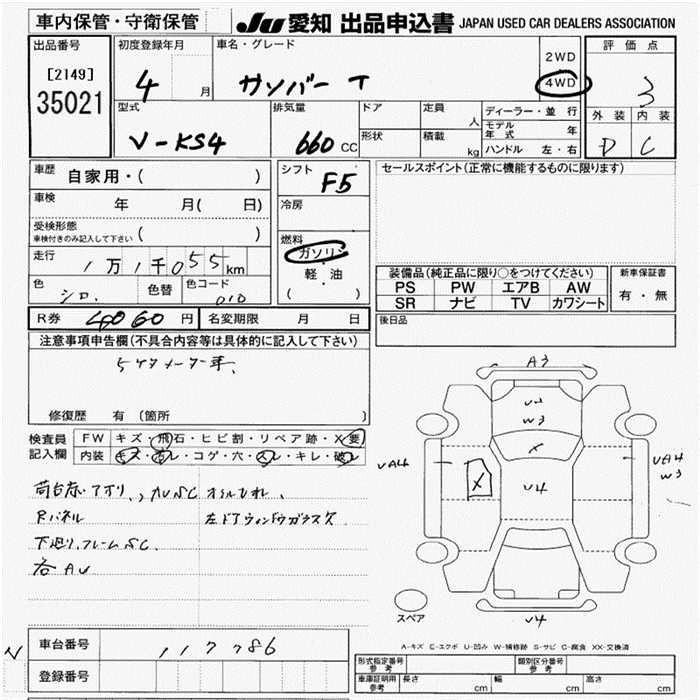 車内保管・守衛保管
JU 愛知 出品申込書 JAPAN USED CAR DEALERS ASSOCIATION
出品番号
[2149]
35021
初度登録年月
4 月
車名・グレード
サンバー T
2WD
4WD
評価点
3
型式
V-KS4
排気量
660 CC
ドア
形状
定員
人
積載
kg
ディーラー・並行
モデル年式 年
ハンドル 左・右
外装 内装
D C
車歴 自家用・( )
車検 年 月( 日)
受検形態
車検付きのみ記入して下さい ( )
走行 1万1千055km
色 シロ 色替 色コード 010
シフト F5
冷房
燃料
ガソリン
・
軽・油
( )
セールスポイント(正常に機能するものに限ります)
装備品(純正品に限り○をつけてください)
PS PW エアB AW
SR ナビ TV カワシート
新車保証書
有・無
R券 円 名変期限 月 日
後日品
注意事項申告欄(不具合内容等は具体的に記入して下さい)
修復歴 有 (箇所 )
検査員記入欄
FW キズ・飛石・ヒビ割・リペア跡・X要
内装 キズ・汚レ・コゲ・穴・スレ・キレ・破レ
Rパネル
左ドアウィンドウガラスキズ
下廻り、フレームSC.
各AU
A3
U2
W3
X
UA4
X
U4
UA4
W3
U4
スペア
A-キズ E-エクボ U-凹み W-補修跡 S-サビ C-腐食 XX-交換済
車台番号 117786
登録番号
形式指定番号 参考
類別区分番号 参考
車庫証明用 参考
長さ cm 幅 cm 高さ cm